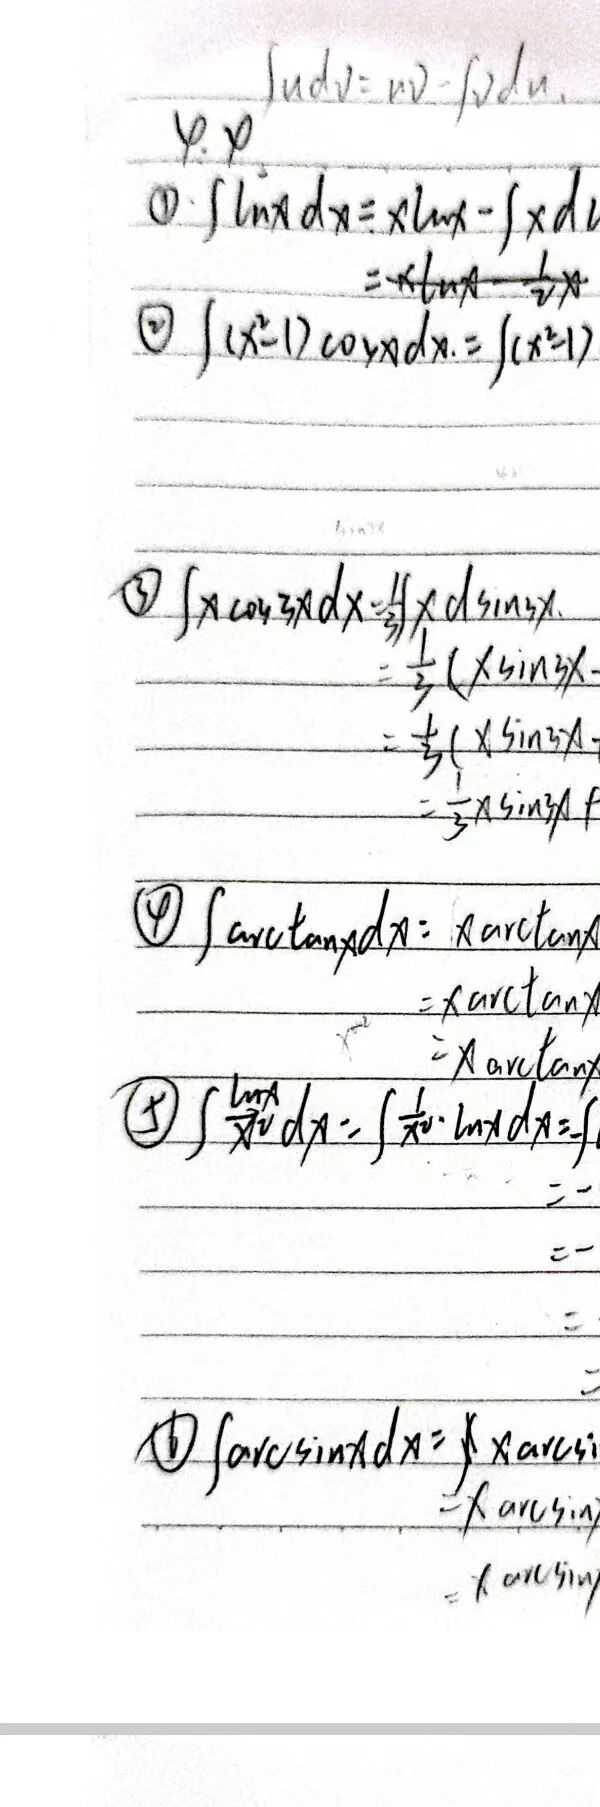 ∫udv = uv - ∫vdu.
4.4
① ∫lnxdx = xlnx - ∫xdl
= xlnx - 1/2 x
② ∫(x²-1)cosxdx. = ∫(x²-1)
③ ∫xcos3xdx = 1/3∫xdsin3x.
= 1/3(xsin3x -
= 1/3(xsin3x +
= 1/3xsin3x +
④ ∫arctanxdx = xarctanx
= xarctanx
= xarctanx
⑤ ∫lnx/x² dx = ∫1/x²·lnxdx = -∫
= -
= -
=
=
⑥ ∫arcsinxdx = xarcsi
= xarcsinx
= xarcsinx